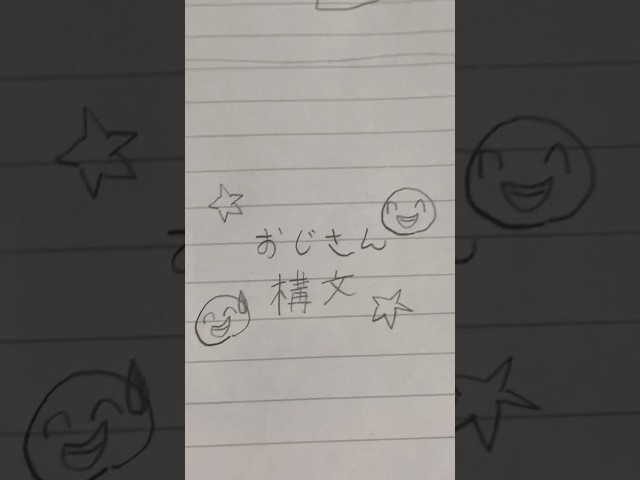 おじさん
構文